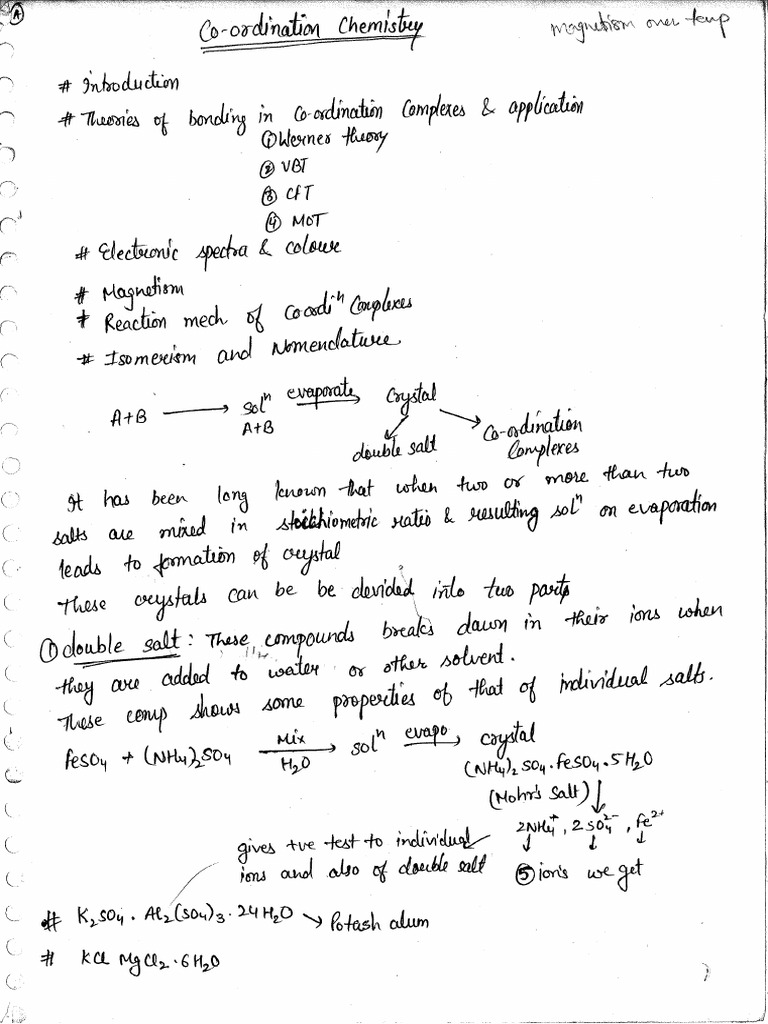 A
Co-ordination Chemistry
magnetism over temp
# Introduction
# Theories of bonding in Co-ordination Complexes & application
① Werner theory
② VBT
③ CFT
④ MOT
# Electronic spectra & colour
# Magnetism
# Reaction mech of Coordiⁿ Complexes
# Isomerism and Nomenclature
A+B ⟶ solⁿ evaporate → Crystal
A+B
double salt
Co-ordination
Complexes
It has been long known that when two or more than two
salts are mixed in stoichiometric ratio & resulting solⁿ on evaporation
leads to formation of crystal
These crystals can be be devided into two parts
① double salt : These compounds breaks dawn in their ions when
they are added to water or other solvent.
These comp shows some properties of that of individual salts.
FeSO4 + (NH4)2SO4 Mix H2O → solⁿ evapo → crystal
(NH4)2 SO4 . FeSO4 . 5H2O
(Mohr's Salt)
2NH4⁺, 2SO4²⁻, Fe²⁺
gives +ve test to individual
ions and also of double salt
⑤ ion's we get
# K2SO4 . Al2(SO4)3 . 24H2O → Potash alum
# KCl MgCl2 . 6H2O